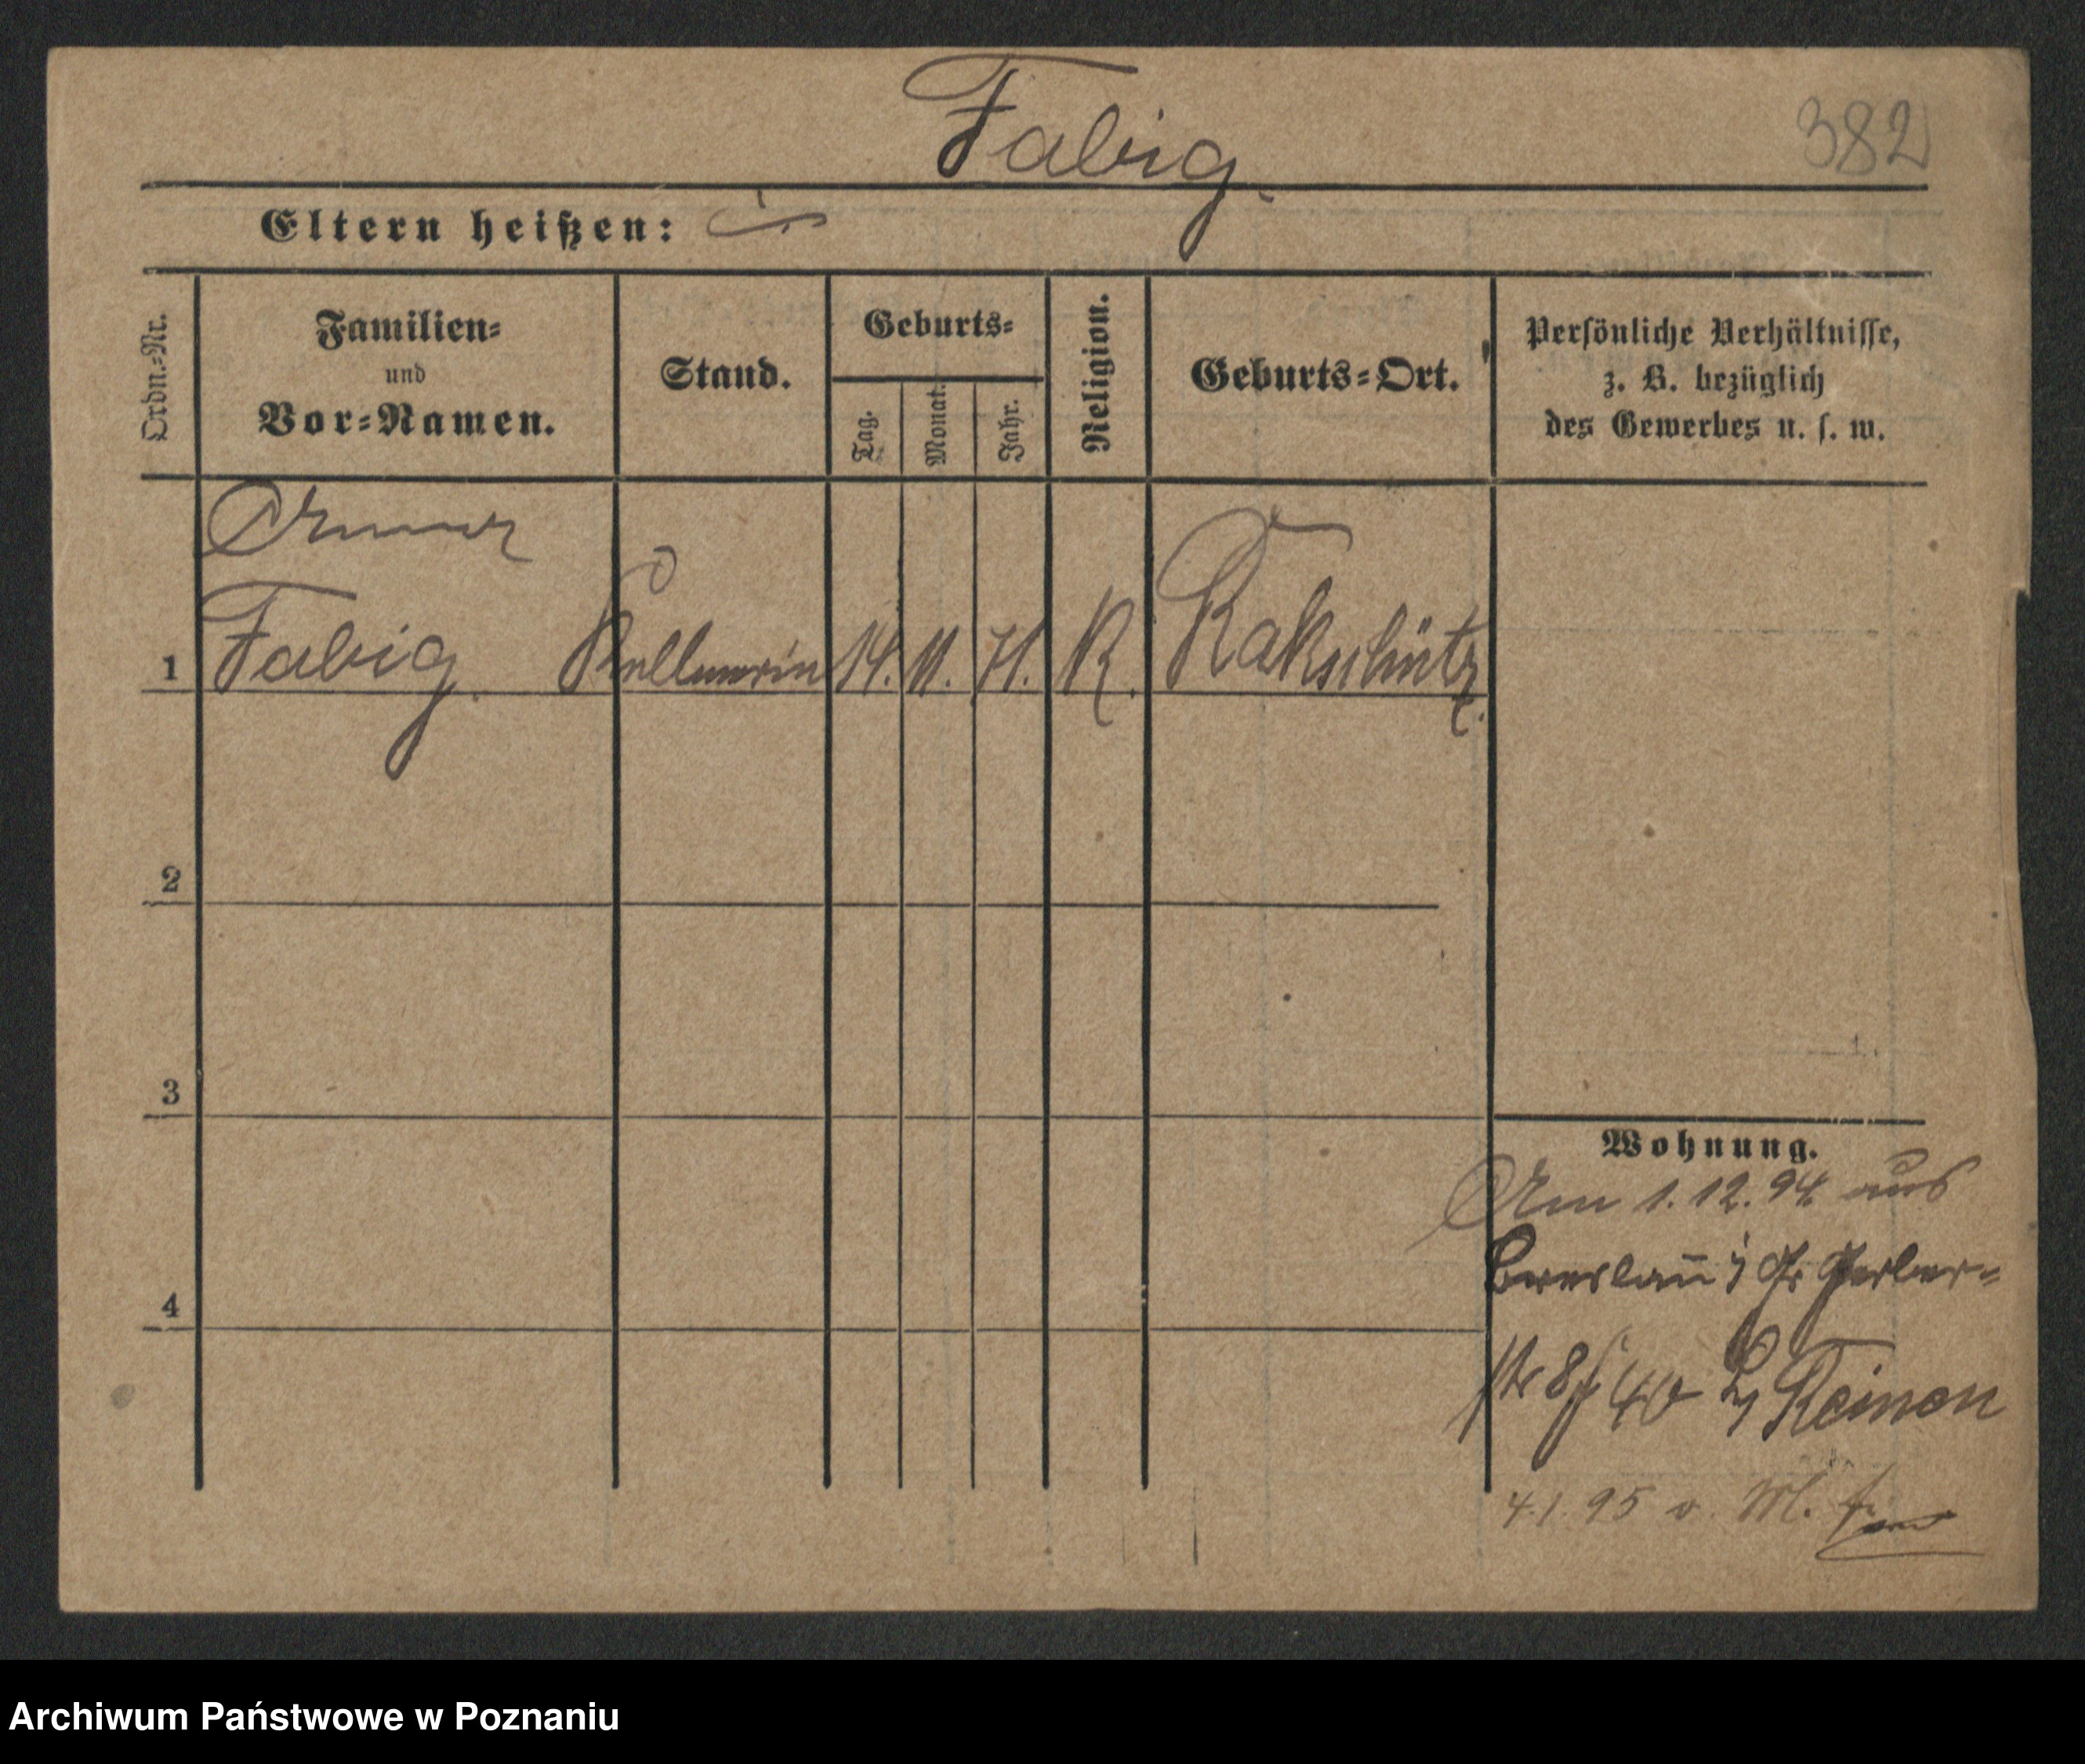 Fabig.
382
Eltern heißen:
Ordn.-Nr.
Familien-
und
Vor-Namen.
Stand.
Geburts-
Tag.
Monat.
Jahr.
Religion.
Geburts-Ort.
Persönliche Verhältnisse,
z. B. bezüglich
des Gewerbes u. s. w.
Anna
1 Fabig. Kellnerin 14. 11. 71. K. Rakschütz.
2
3
4
Wohnung.
Am 1.12.94 aus
Breslau Gr Gerber-
str 8 Reimen
4.1.95 v. M.
Archiwum Państwowe w Poznaniu